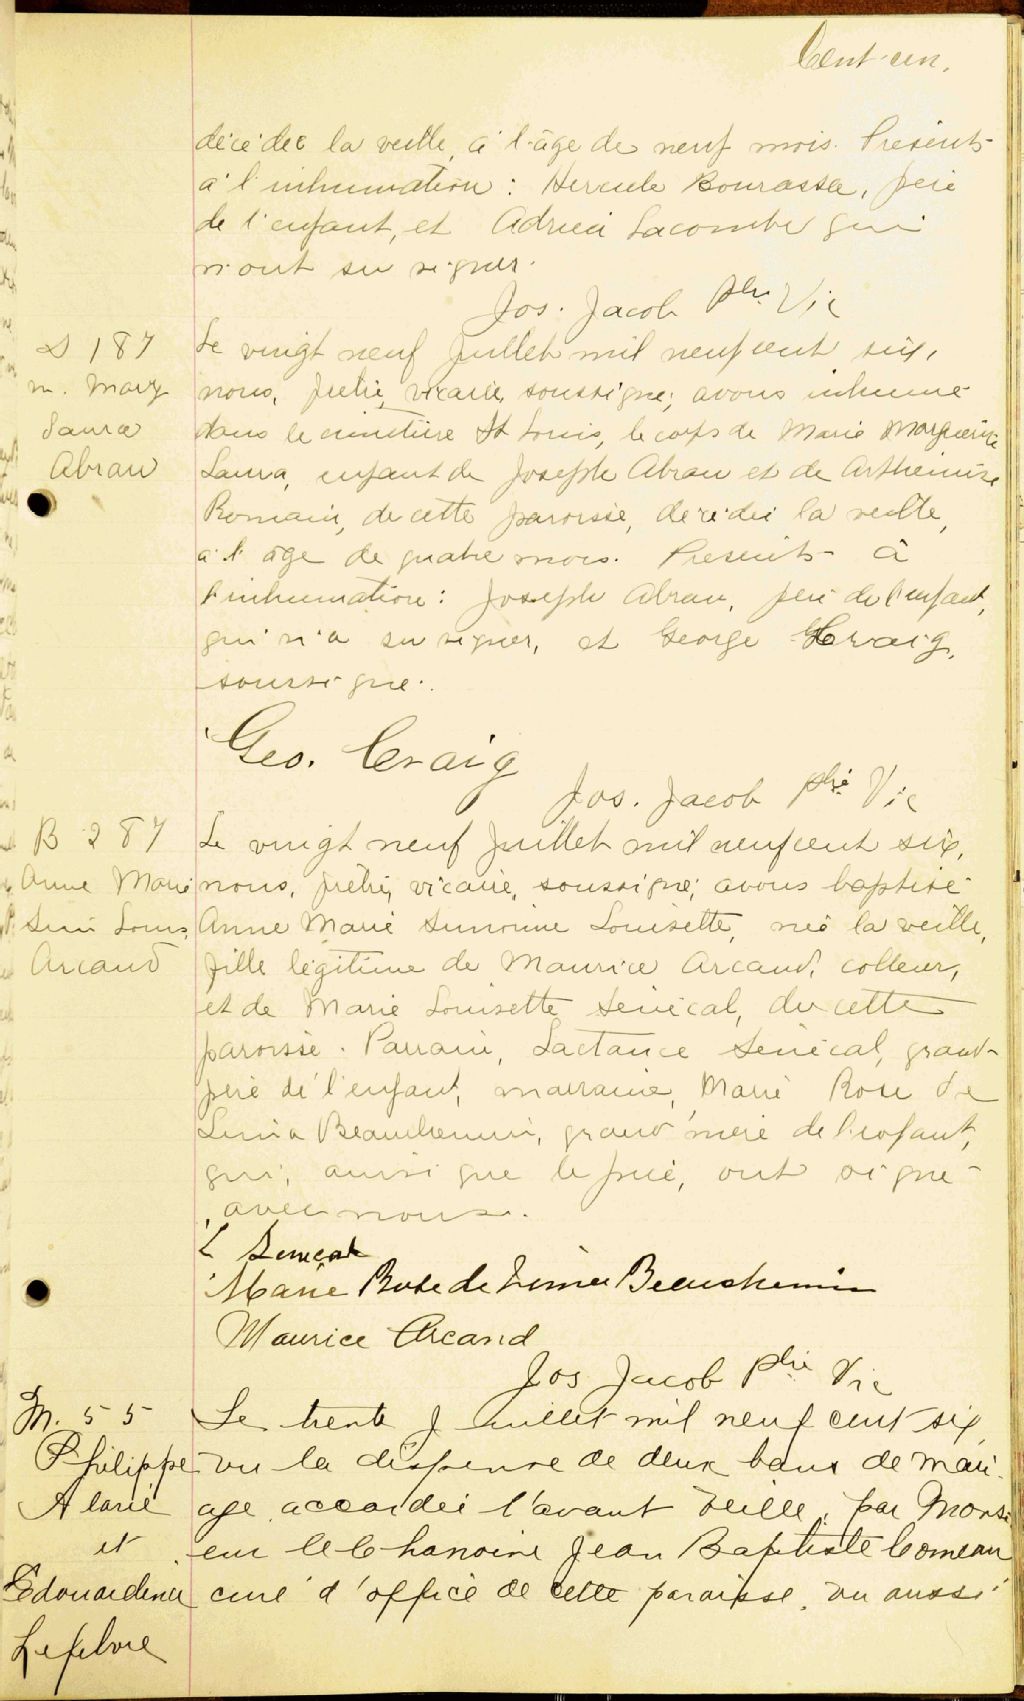 Cent-un.
décédée la veille, à l'âge de neuf mois. Présents
à l'inhumation : Hercule Bourassa, père
de l'enfant, et Adrien Lacombe qui
n'ont su signer.
Jos. Jacob Ptre Vic
S 187
m. Marg
Laura
Abran
Le vingt neuf Juillet mil neuf cent six,
nous, prêtre, vicaire, soussigné, avons inhumé
dans le cimetière St Louis, le corps de Marie Marguerite
Laura, enfant de Joseph Abran et de Arthémise
Romain, de cette paroisse, décédée la veille,
à l'âge de quatre mois. Présents à
l'inhumation : Joseph Abran, père de l'enfant,
qui n'a su signer, et George Craig,
soussigné.
Geo. Craig
Jos. Jacob Ptre Vic
B 287
Anne Marie
Sim Louis.
Arcand
Le vingt neuf Juillet mil neuf cent six,
nous, prêtre, vicaire, soussigné, avons baptisé
Anne Marie Simonne Louisette, née la veille,
fille légitime de Maurice Arcand, colleur,
et de Marie Louisette Sénécal, de cette
paroisse. Parrain, Lactance Sénécal, grand-
père de l'enfant, marraine, Marie Rose de
Lima Beauchemin, grand'mère de l'enfant,
qui, ainsi que le père, ont signé
avec nous.
L Senecal
Marie Rose de Lima Beauchemin
Maurice Arcand
Jos Jacob Ptre Vic
M. 55
Philippe
Alarie
et
Edouardina
Lefebvre
Le trente Juillet mil neuf cent six,
vu la dispense de deux bans de mari-
age accordée l'avant veille, par Monsi
eur le Chanoine Jean Baptiste Comeau
curé d'office de cette paroisse, vu aussi